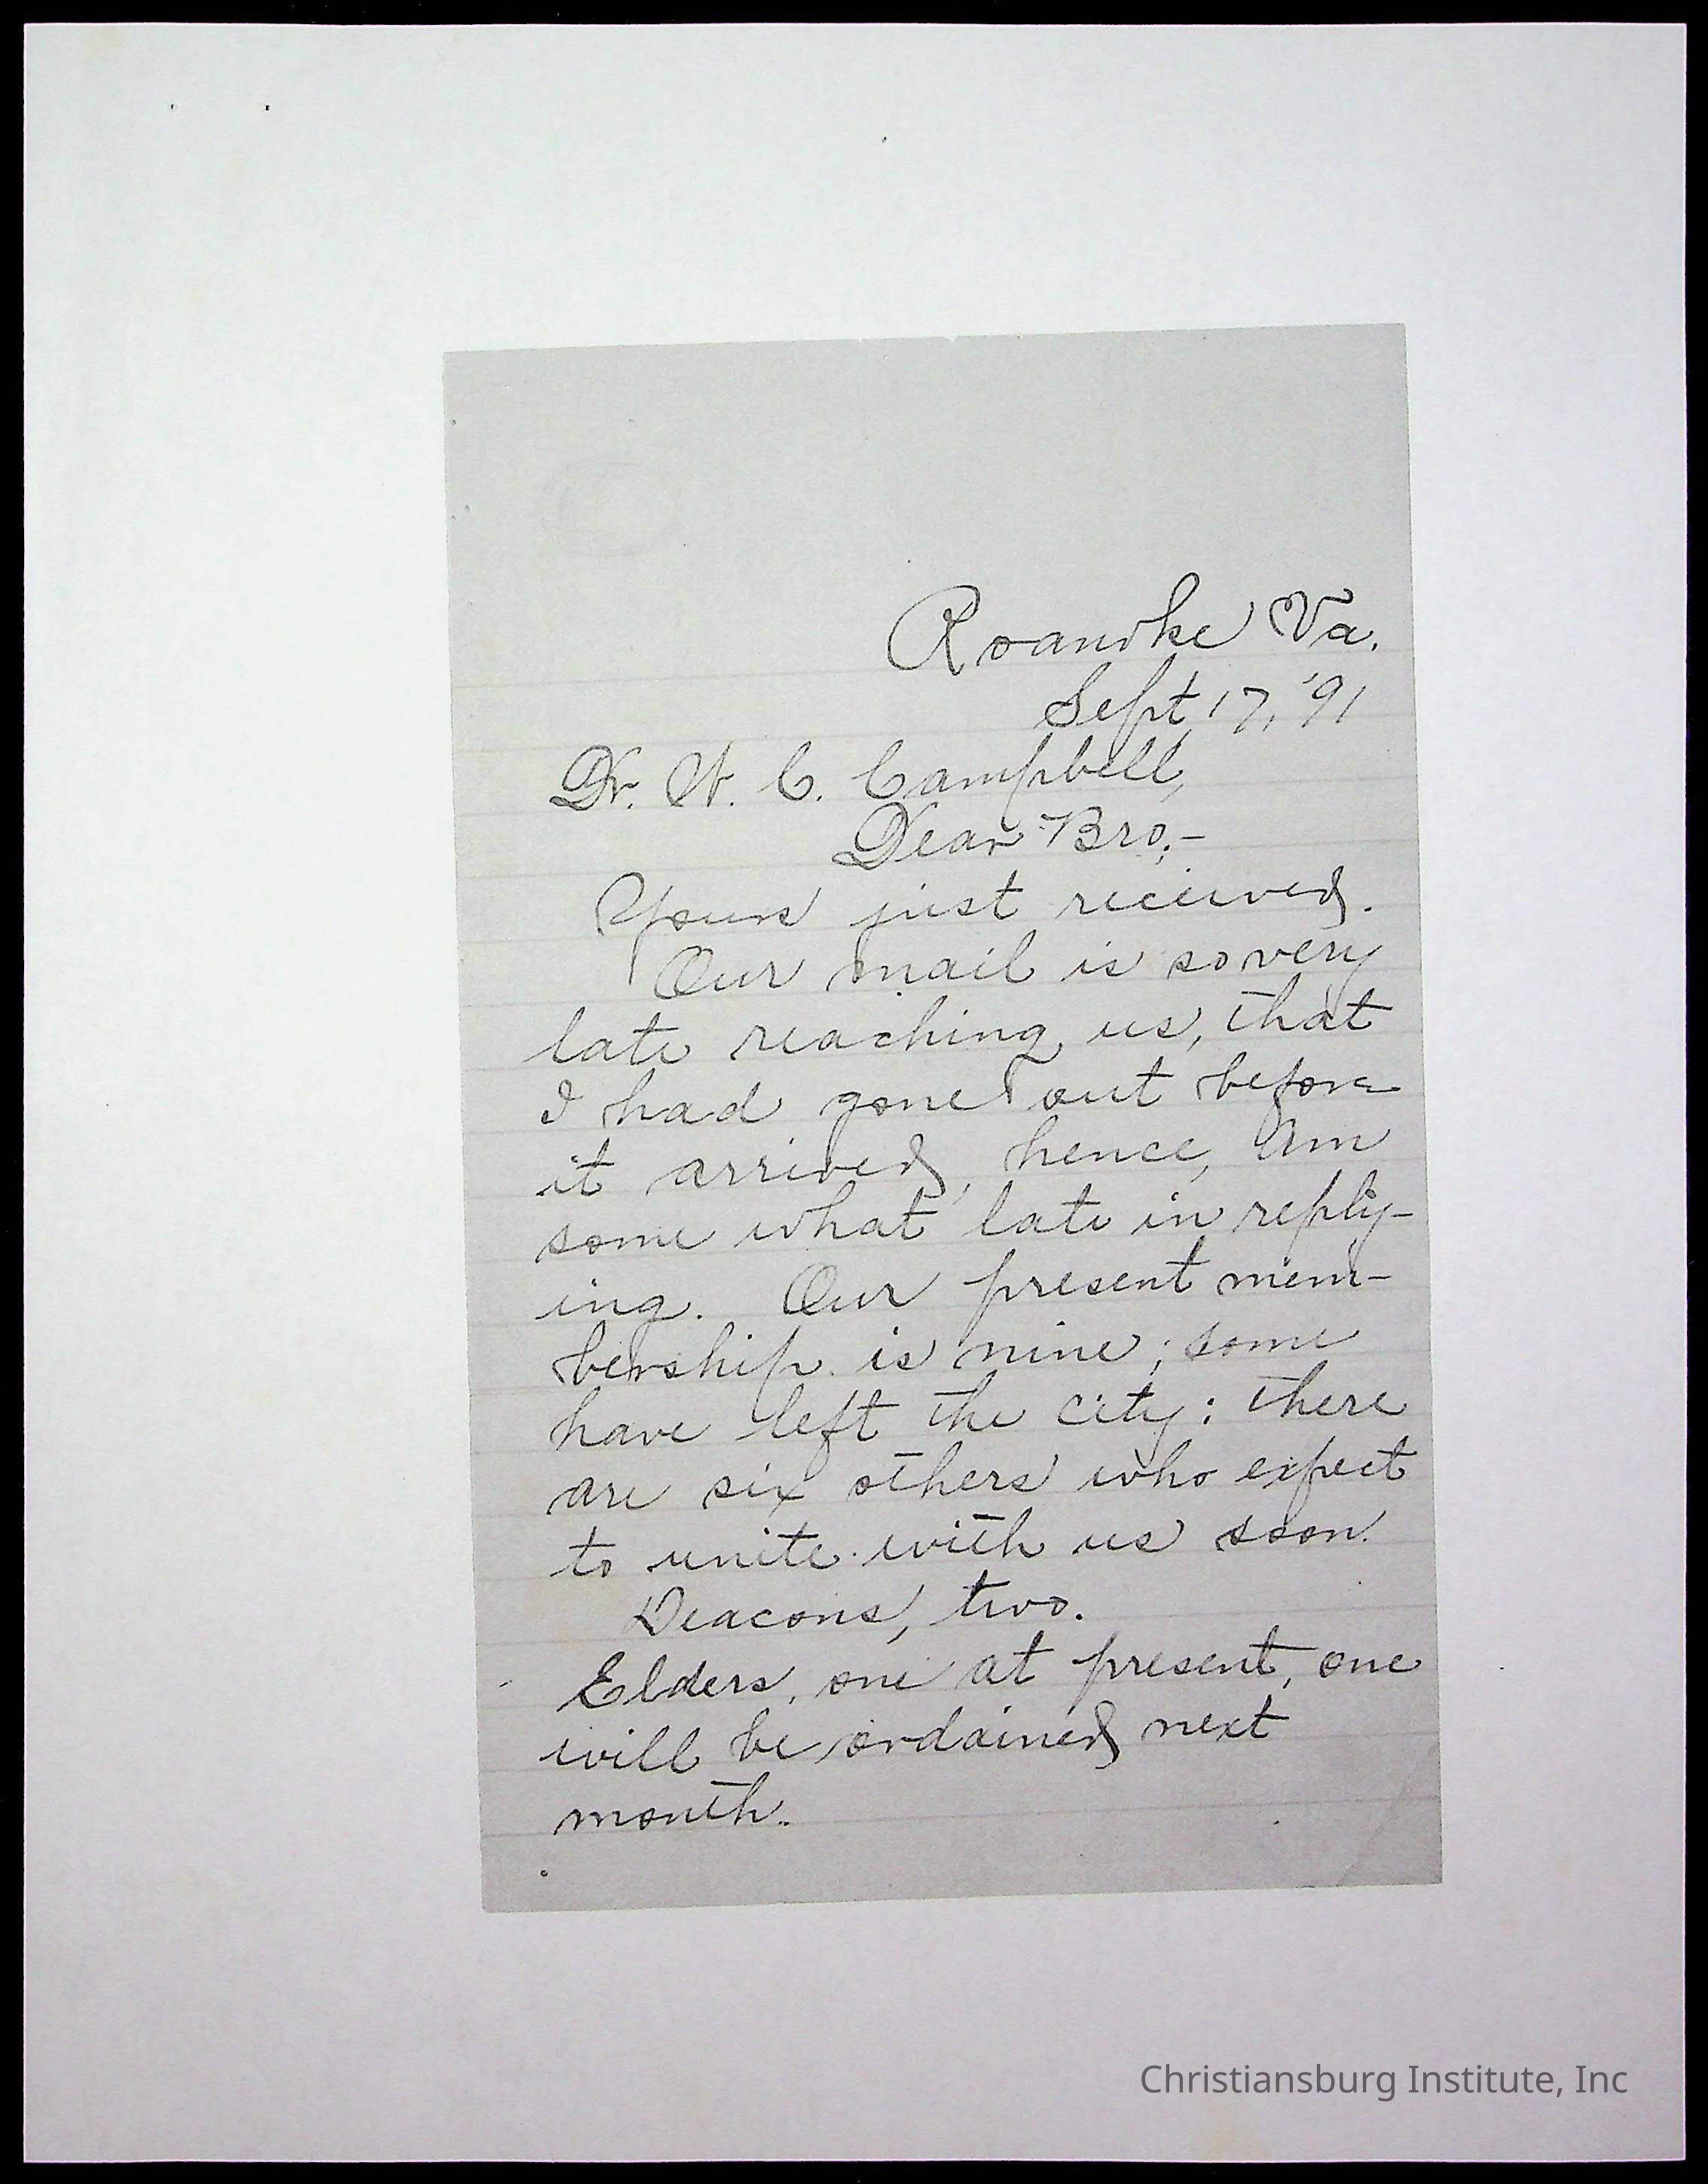 Roanoke Va.
Sept 17, '91
Dr. W. C. Campbell,
Dear Bro,-
Yours just received.
Our mail is so very
late reaching us, that
I had gone out before
it arrived, hence, am
some what late in reply-
ing. Our present mem-
bership is nine; some
have left the city: there
are six others who expect
to unite with us soon.
Deacons, two.
Elders, one at present, one
will be ordained next
month.
Christiansburg Institute, Inc